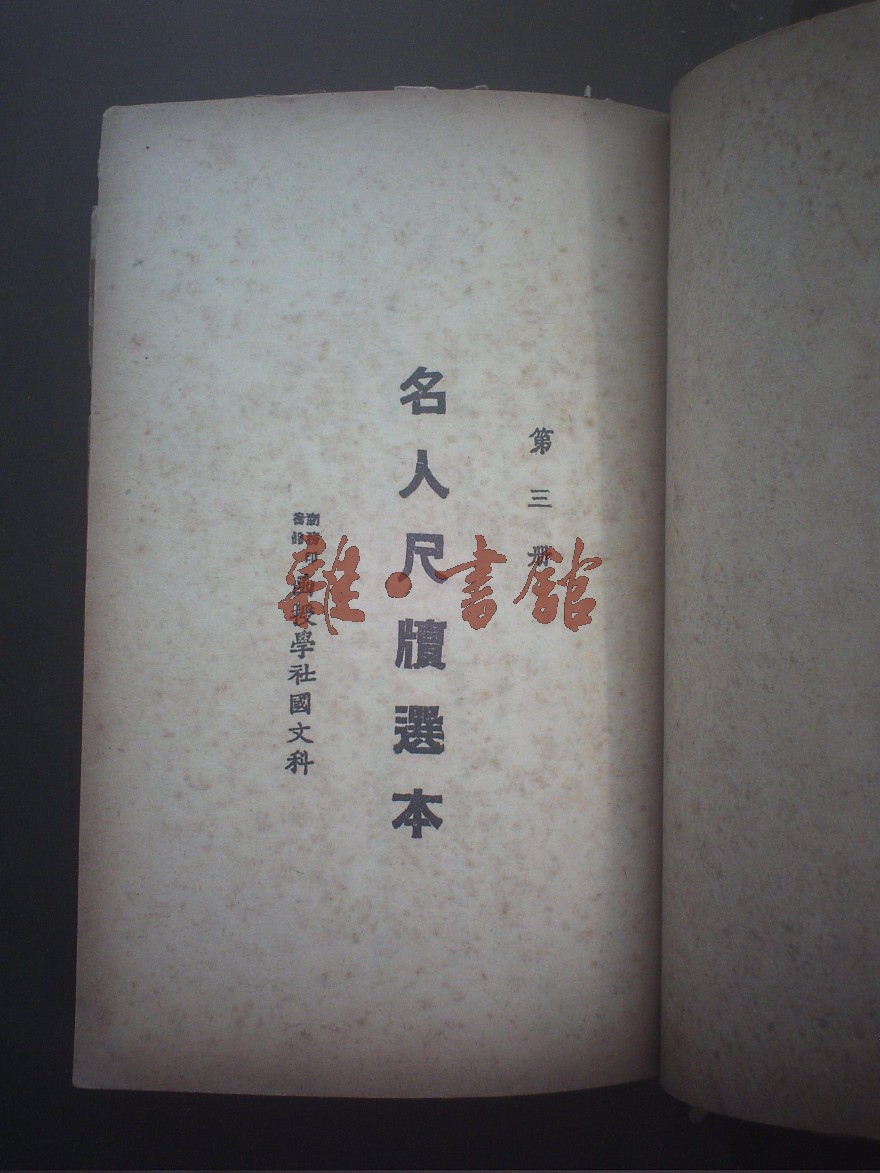 第三册
名人尺牘選本
商務印書館函授學社國文科
雜·書館